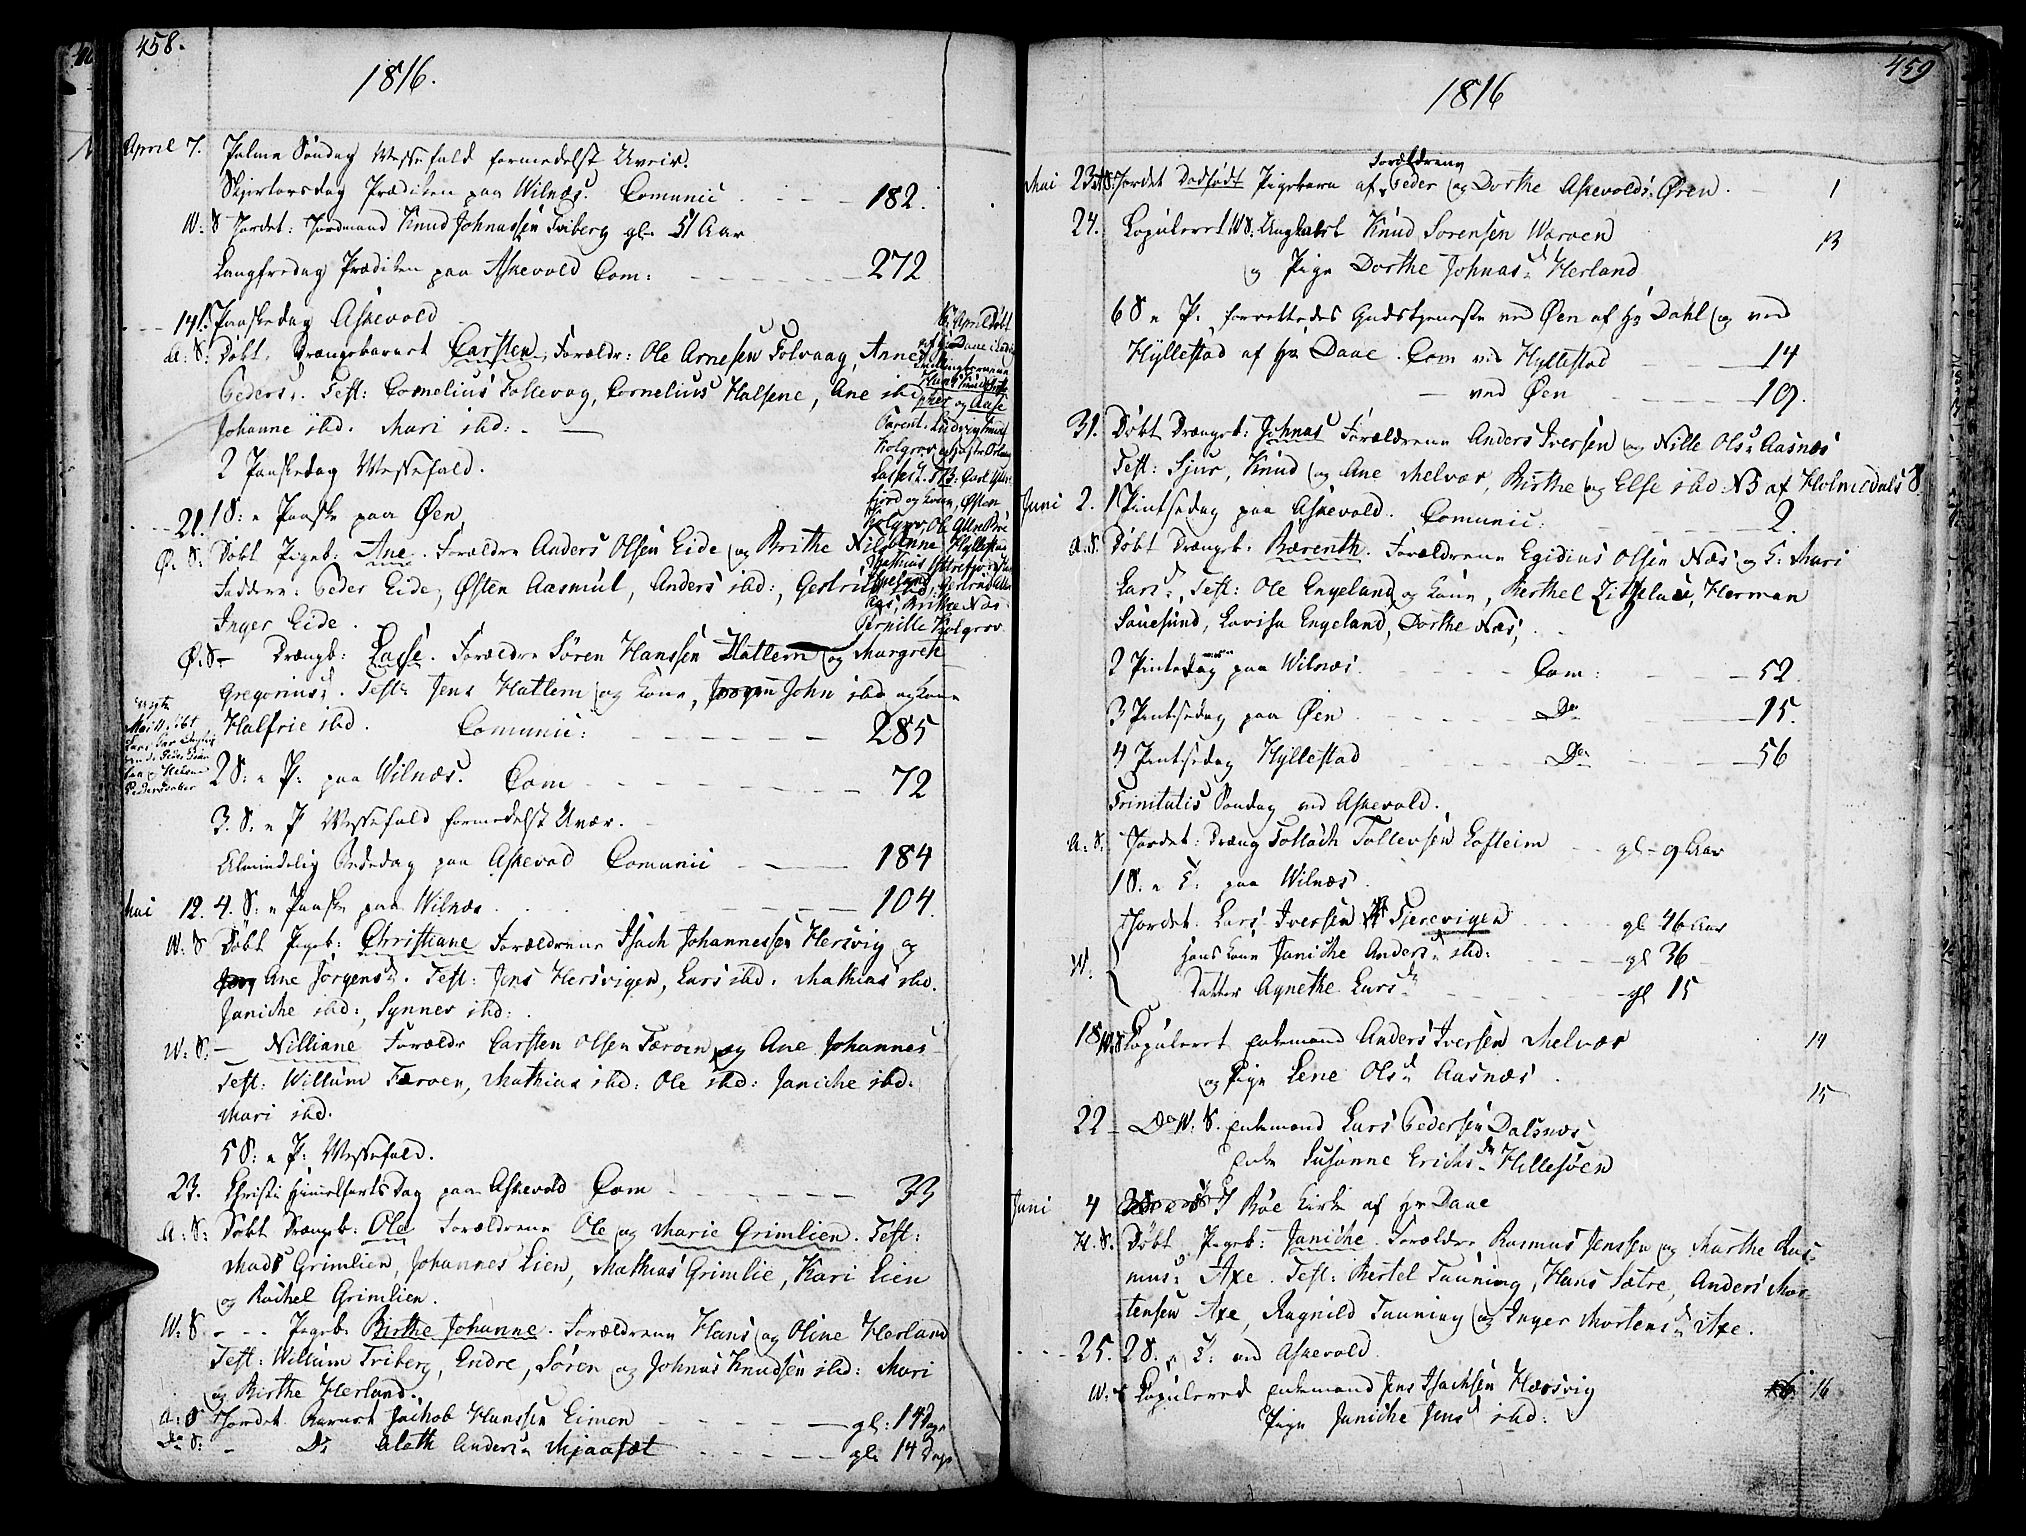 458.
1816.
April 7. Palme Søndag Messefald formedelst Uveir.
Skjertorsdag Prædiken paa Wilnæs. Comunic 182.
W: S Jordet: Jordmand Knud Johnassen Friberg gl. 51 Aar
Langfredag Prædiken paa Askevold Com: 272
14. 1 Paaskedag Askevold
A: S: Døbt. Drængebarnet Carsten, Forældr: Ole Arnesen Folvaag, Anne
Peders. Test: Cornelius Follevog, Cornelius Halsene, Ane ibd
Johanne ibd. Mari ibd:
2 Paaskedag Messefald.
21. 1 S: e Paaske paa Øen
Ø: S: Døbt Pigeb: Ane. Forældre Anders Olsen Eide og Brithe Nils
Faddere: Peder Eide, Østen Aasmul, Anders ibd:, Gertrud ibd,
Inger Eide.
Ø: S- Drængb: Lasse. Forældre Søren Hanssen Hattem og Margrete
Gregorius. Test: Jens Hattem og Kone, John ibd og Kone
Halfrie ibd. Comunic: 285
2 S: e P: paa Wilnæs. Com 72
3. S. e P Messefald formedelst Uvær.
Almindelig Bededag paa Askevold Comunic 184
Mai 12. 4. S: e Paaske paa Wilnæs 104.
W: S Døbt Pigeb: Christiane Forældrene Isach Johannessen Hersvig og
Ane Jørgens. Test: Jens Hersvigen, Lars ibd. Mathias ibd.
Janiche ibd:, Synnev ibd:
W: S.- Nilliane Forældr Carsten Olsen Færøen og Ane Johannes
Test: Willum Færøen, Mathias ibd: Ole ibd: Janiche ibd:
Mari ibd.
5 S: e P: Messefald.
23. Christi Himmelfarts Dag paa Askevold Com 33
A: S: Døbt Drængeb: Ole Forældrene Ole og Marie Grimlien. Test:
Mads Grimlien, Johannes Lien, Mathias Grimlie, Kari Lien
og Rachel Grimlien.
W: S. - - - Pigeb: Birthe Johanne. Forældrene Hans og Oline Herland
Test: Willum Friberg, Endre, Søren og Johnas Knudsen ibd: Mari
og Birthe Herland.
A: S Jordet. Barnet Jachob Hanssen Eimen gl: 14 Dage
Do S: - Do Aleth Anders Mjaasæt gl: 14 Dage
April Døbt
og Aase
Mai
459
1816
Mai 23. A: S: Jordet Dødfødt Pigebarn af Forældrene Peder og Dorthe Askevolds Øren. 1
24. Copuleret W S: Ungkarl Knud Sørensen Wæroen 13
og Pige Dorthe Johnas Herland
6 S e P: forrettedes Gudstjeneste ved Øen af Hr Dahl og ved
Hyllestad af Hr Daae. Com ved Hyllestad 14
ved Øen 19.
31. Døbt Drængeb: Johnas Forældrene Anders Iversen og Nille Ols Aasnæs
Test: Sjur, Knud og Ane Melvær, Birthe og Else ibd: NB af Holmedals S.
Juni 2. 1 Pintsedag paa Askevold. Comunic: 2
A: S. Døbt Drængb. Bærenth. Forældrene Egidius Olsen Næs og K: Mari
Lars, Test: Ole Engeland og Kone, Berthel, Herman
Sauesund, Lovisa Engeland, Dorthe Næs,
2 Pintsedag paa Wilnæs. Com: 52.
3 Pintsedag paa Øen Do 15.
4 Pintsedag Hyllestad Do 56
Trinitatis Søndag ved Askevold.
A: S: Jordet: Dræng Tollach Tollevsen Lofteim gl - 9 Aar
1 S: e T: paa Wilnæs.
Jordet. Lars Iversen Tjerevigen gl 46 Aar
W: Hans Kone Janiche Anders ibd: gl 36
Datter Agnethe Lars gl 15
18 W S Copuleret Enkemand Anders Iversen Melvær 14
og Pige Lene Ols Aasnæs.
15
22 - Do W: S. Enkemand Lars Pedersen Dalsnæs
Enke Susanne Erichs Hillesøen
Juni 4 I Bøe Kirke af Hr Daae
H. S. Døbt Pigeb: Janiche. Forældre Rasmus Jenssen og Marthe Ras-
mus Axe. Test: Bertel Tauning, Hans Sætre, Anders Mor-
tensen Axe, Ragnild Tauning og Inger Mortens Axe.
25. 2 S. e T: ved Askevold.
W: S Copulered Enkemand Jens Isachsen Hærsvig 16
Pige Janiche Jens ibd: